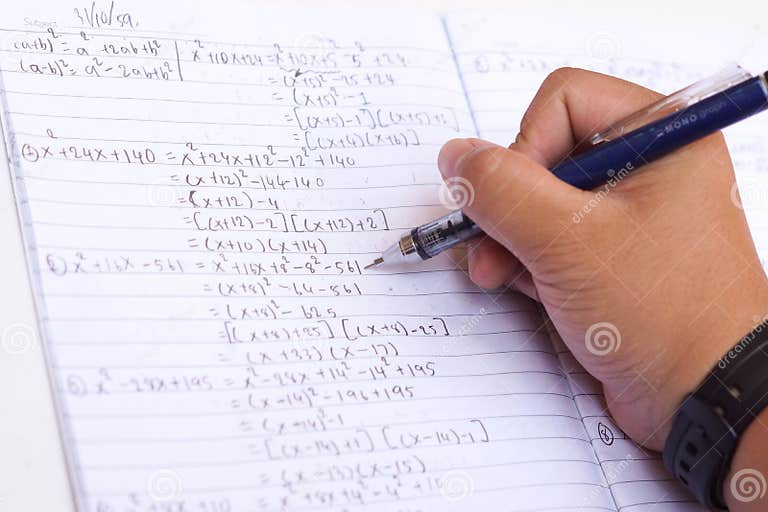 31/10/59.
(a+b)² = a² + 2ab + b²
(a-b)² = a² - 2ab + b²
x² + 10x + 24 = x² + 10x + 5² - 5² + 24
= (x+5)² - 25 + 24
= (x+5)² - 1
= [(x+5)-1][(x+5)+1]
= [(x+4)(x+6)]
x² + 24x + 140 = x² + 24x + 12² - 12² + 140
= (x+12)² - 144 140
= (x+12) - 4
= [(x+12)-2][(x+12)+2]
= (x+10)(x+14)
x² + 16x - 561 = x² + 16x + 8² - 8² - 561
= (x+8)² - 64 - 561
= (x+8)² - 625
= [(x+8)+25][(x+8)-25]
= (x+33)(x-17)
x² - 28x + 195 = x² - 28x + 14² - 14² + 195
= (x-14)² - 196 + 195
= (x-14)² - 1
= [(x-14)+1][(x-14)-1]
= (x-13)(x-15)
MONO graph
8
dreamstime